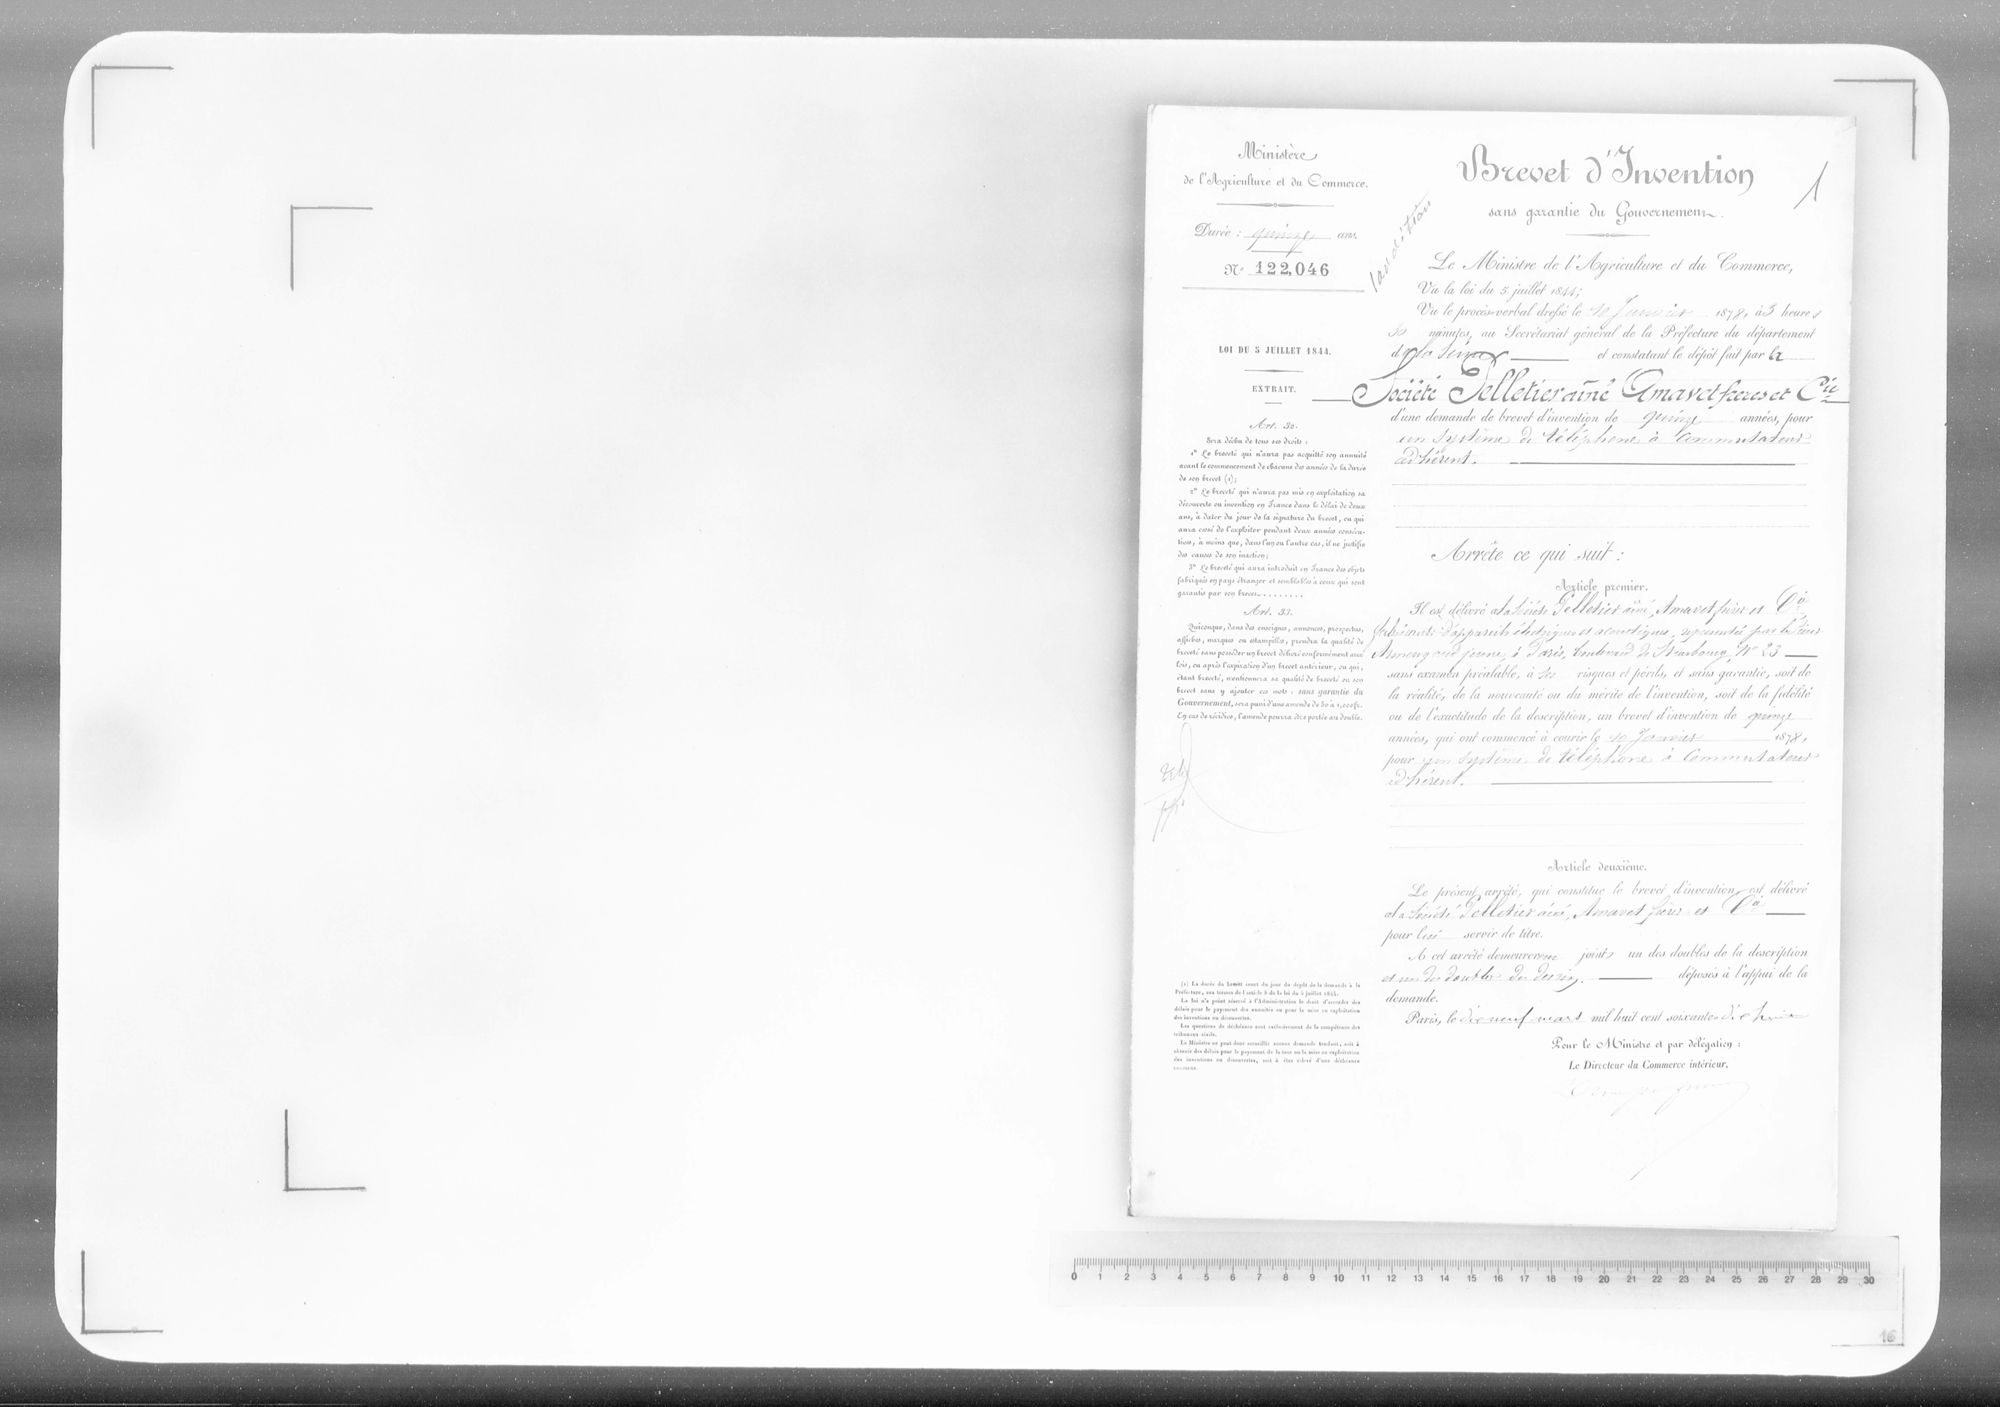 Ministère
de l'Agriculture et du Commerce.
Durée : quinze ans.
N° 122,046
LOI DU 5 JUILLET 1844.
EXTRAIT.
Art. 32.
Sera déchu de tous ses droits :
1° Le breveté qui n'aura pas acquitté son annuité
avant le commencement de chacune des années de la durée
de son brevet (1);
2° Le breveté qui n'aura pas mis en exploitation sa
découverte ou invention en France dans le délai de deux
ans, à dater du jour de la signature du brevet, ou qui
aura cessé de l'exploiter pendant deux années consécu-
tives, à moins que, dans l'un ou l'autre cas, il ne justifie
des causes de son inaction;
3° Le breveté qui aura introduit en France des objets
fabriqués en pays étranger et semblables à ceux qui sont
garantis par son brevet........
Art. 33.
Quiconque, dans des enseignes, annonces, prospectus,
affiches, marques ou estampilles, prendra la qualité de
breveté sans posséder un brevet délivré conformément aux
lois, ou après l'expiration d'un brevet antérieur, ou qui,
étant breveté, mentionnera sa qualité de breveté ou son
brevet sans y ajouter ces mots : sans garantie du
Gouvernement, sera puni d'une amende de 50 à 1,000 fr.
En cas de récidive, l'amende pourra être portée au double.
(1) La durée du brevet court du jour du dépôt de la demande à la
Préfecture, aux termes de l'article 8 de la loi du 5 juillet 1844.
La loi n'a point réservé à l'Administration le droit d'accorder des
délais pour le payement des annuités ou pour la mise en exploitation
des inventions ou découvertes.
Les questions de déchéance sont exclusivement de la compétence des
tribunaux civils.
Le Ministre ne peut donc accueillir aucune demande tendant, soit à
obtenir des délais pour le payement de la taxe ou la mise en exploitation
des inventions ou découvertes, soit à être relevé d'une déchéance
encourue.
1 addition
Brevet d'Invention
1
sans garantie du Gouvernement.
Le Ministre de l'Agriculture et du Commerce,
Vu la loi du 5 juillet 1844;
Vu le procès-verbal dressé le 10 Janvier 1878, à 3 heures
30 minutes, au Secrétariat général de la Préfecture du département
de la Seine et constatant le dépôt fait par la
Société Pelletier aîné Amavet frères et Cie
d'une demande de brevet d'invention de quinze années, pour
un système de téléphone à commutateur
adhérent.
Arrête ce qui suit :
Article premier.
Il est délivré à la Société Pelletier aîné, Amavet frères et Cie
fabricants d'appareils électriques et acoustiques, représentée par le sieur
Armengaud jeune, à Paris, boulevard de Strasbourg, N° 23
sans examen préalable, à ses risques et périls, et sans garantie, soit de
la réalité, de la nouveauté ou du mérite de l'invention, soit de la fidélité
ou de l'exactitude de la description, un brevet d'invention de quinze
années, qui ont commencé à courir le 10 Janvier 1878,
pour un système de téléphone à commutateur
adhérent.
Article deuxième.
Le présent arrêté, qui constitue le brevet d'invention, est délivré
à la Société Pelletier aîné, Amavet frères et Cie
pour lui servir de titre.
A cet arrêté demeureront joints un des doubles de la description
et un des doubles du dessin, déposés à l'appui de la
demande.
Paris, le dix neuf mars mil huit cent soixante dix huit
Pour le Ministre et par délégation :
Le Directeur du Commerce intérieur,
0 1 2 3 4 5 6 7 8 9 10 11 12 13 14 15 16 17 18 19 20 21 22 23 24 25 26 27 28 29 30
16